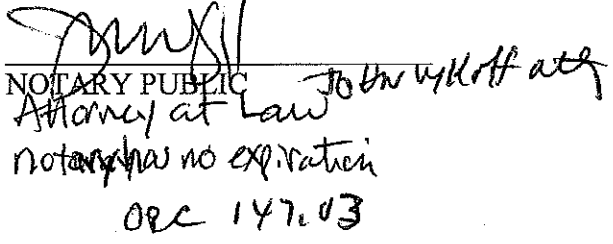 NOTARY PUBLIC John
Attorney at Law
notary has no expiration
ORC 147.03